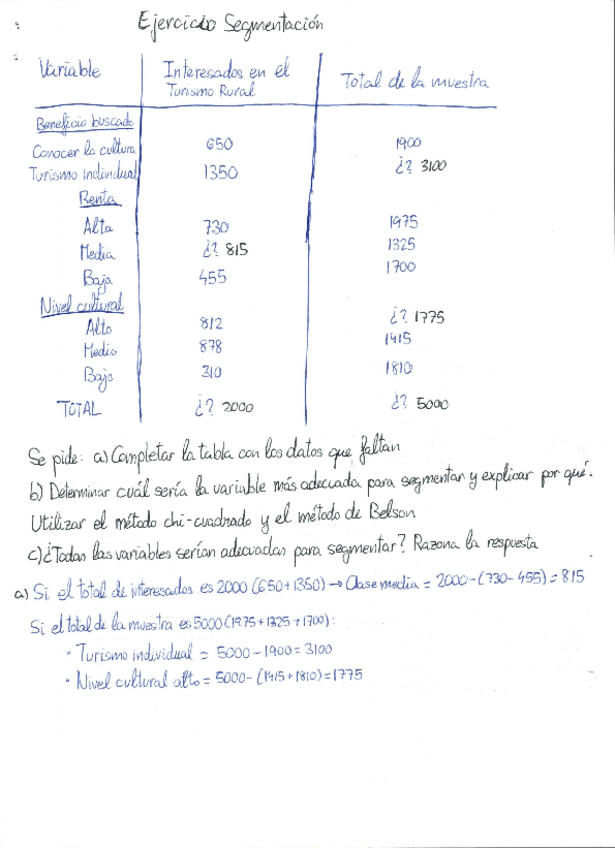 Ejercicio Segmentación
Variable Interesados en el Total de la muestra
Turismo Rural
Beneficio buscado
Conocer la cultura 650 1900
Turismo individual 1350 ¿? 3100
Renta
Alta 730 1975
Media ¿? 815 1325
Baja 455 1700
Nivel cultural
Alto 812 ¿? 1775
Medio 878 1415
Bajo 310 1810
TOTAL ¿? 2000 ¿? 5000
Se pide: a) Completar la tabla con los datos que faltan
b) Determinar cuál sería la variable más adecuada para segmentar y explicar por qué.
Utilizar el método chi-cuadrado y el método de Belson
c) ¿Todas las variables serían adecuadas para segmentar? Razona la respuesta
a) Si el total de interesados es 2000 (650+1350) → Clase media = 2000-(730-455) = 815
Si el total de la muestra es 5000 (1975+1325+1700):
· Turismo individual = 5000-1900 = 3100
· Nivel cultural alto = 5000-(1415+1810) = 1775